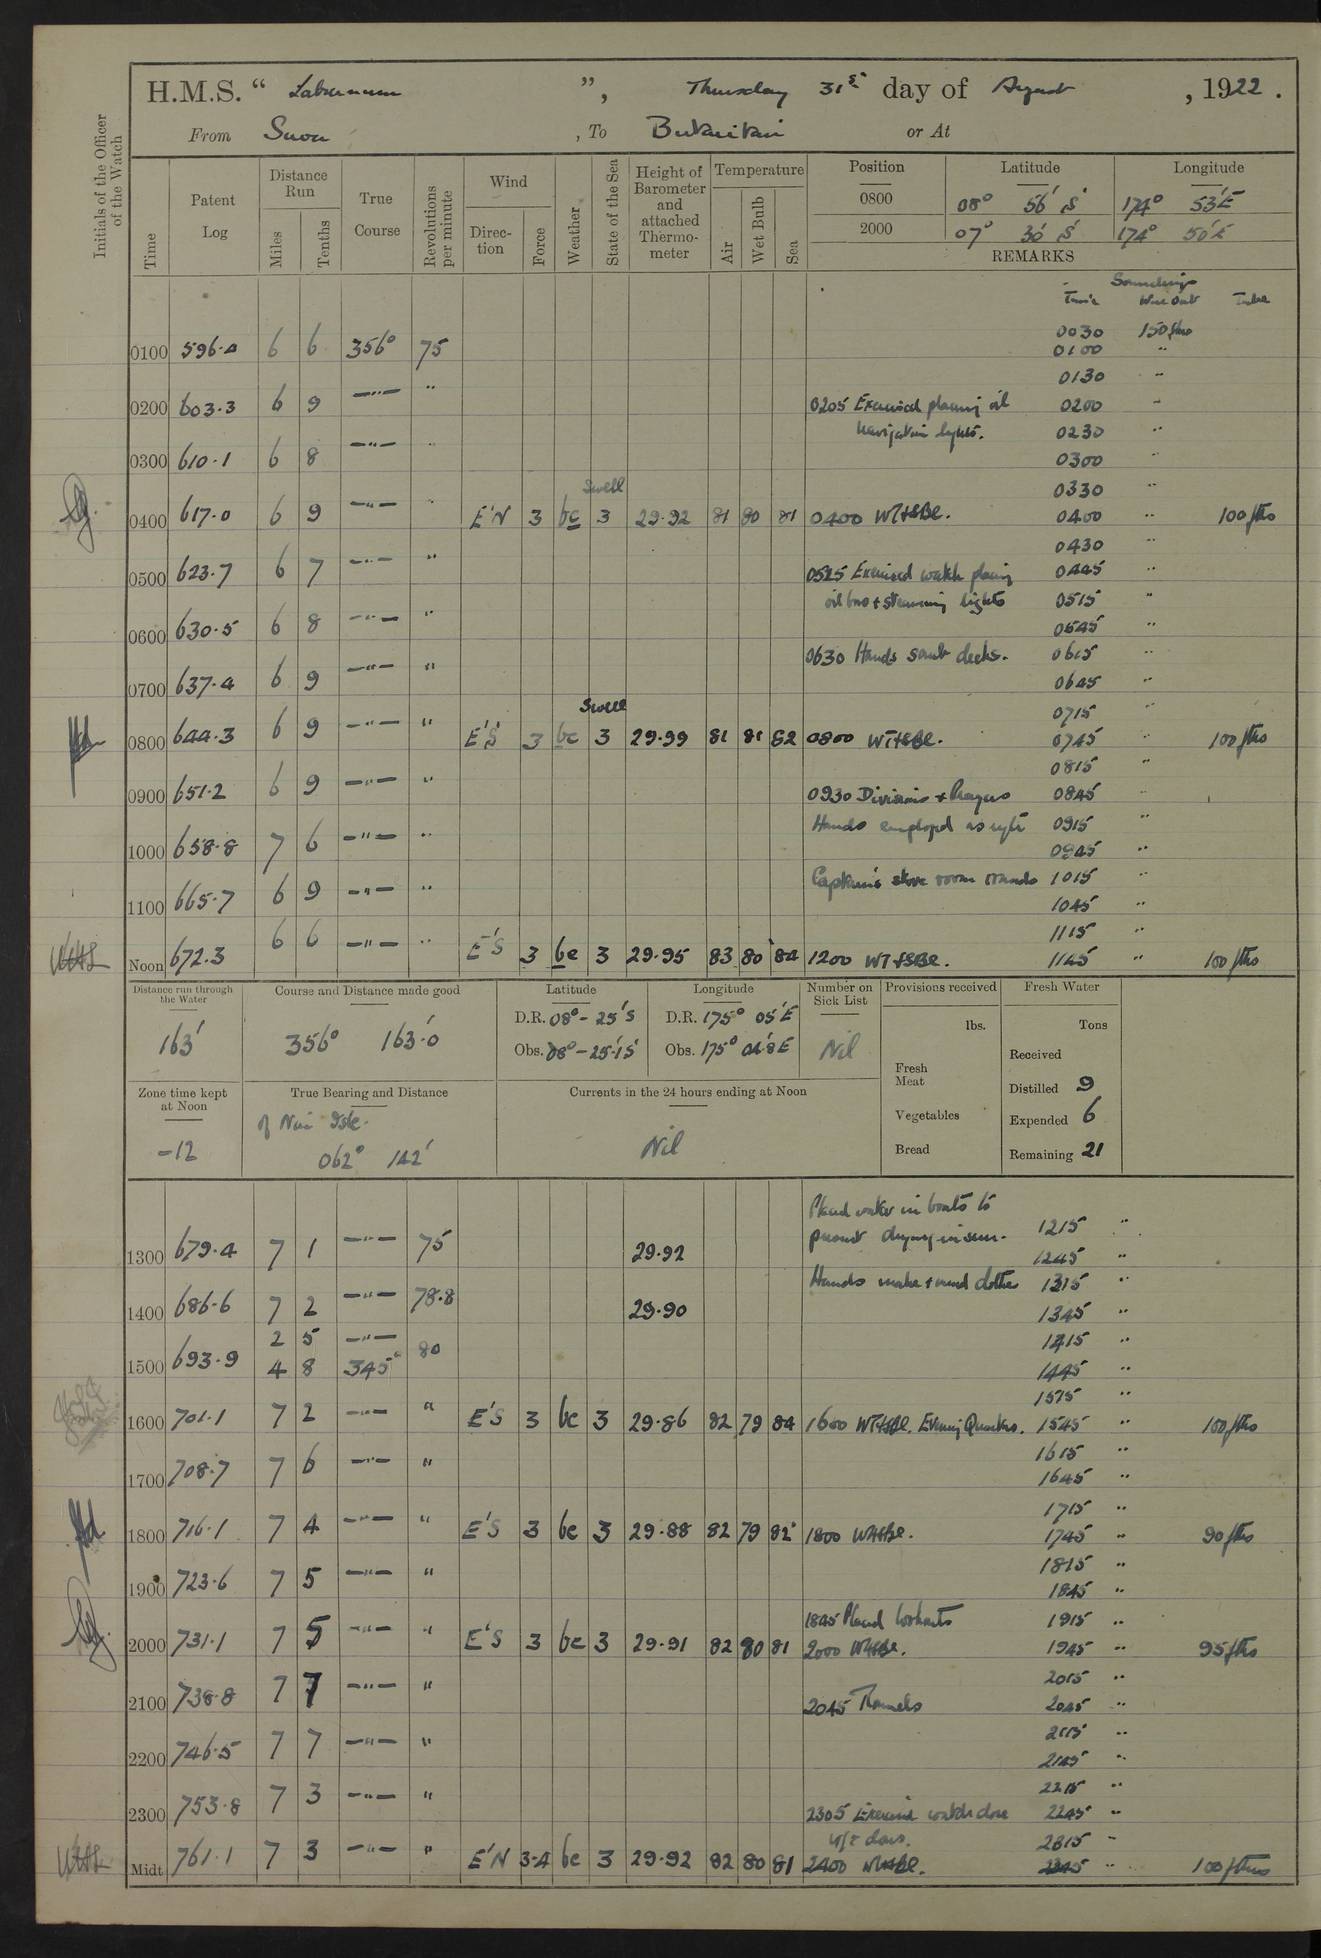 H.M.S. “ Laburnum ”, Thursday 31st day of August , 1922 .
From Suva , To Butaritari or At
Initials of the Officer of the Watch
Time
Patent Log
Distance Run
Miles
Tenths
True Course
Revolutions per minute
Wind
Direction
Force
Weather
State of the Sea
Height of Barometer and attached Thermometer
Temperature
Air
Wet Bulb
Sea
Position Latitude Longitude
0800 08° 56' S 174° 53' E
2000 07° 30' S 174° 50' E
REMARKS
Soundings
Time Wire Out Tube
0030 150 fms
0100 596.4 6 6 356° 75 0100 "
0130 "
0200 603.3 6 9 —"— " 0205 Exercised placing oil 0200 "
navigation lights. 0230 "
0300 610.1 6 8 —"— " 0300 "
Swell 0330 "
0400 617.0 6 9 —"— " E'N 3 bc 3 29.92 81 80 81 0400 WT+SBC. 0400 " 100 fms
0430 "
0500 623.7 6 7 —"— " 0525 Exercised watch placing 0445 "
oil bow + steaming lights 0515 "
0600 630.5 6 8 —"— " 0545 "
0630 Hands scrub decks. 0615 "
0700 637.4 6 9 —"— " 0645 "
Swell 0715 "
0800 644.3 6 9 —"— " E'S 3 bc 3 29.99 81 81 82 0800 WT+SBC. 0745 " 100 fms
0815 "
0900 651.2 6 9 —"— " 0930 Divisions + Prayers 0845 "
Hands employed as reqte 0915 "
1000 658.8 7 6 —"— " 0945 "
Captain's store room rounds 1015 "
1100 665.7 6 9 —"— " 1045 "
1115 "
Noon 672.3 6 6 —"— " E'S 3 bc 3 29.95 83 80 84 1200 WT+SBC. 1145 " 100 fms
Distance run through the Water
163'
Course and Distance made good
356° 163'.0
Latitude
D.R. 08° - 25' S
Obs. 08° - 25'.1 S
Longitude
D.R. 175° 05' E
Obs. 175° 04'.8 E
Number on Sick List
Nil
Provisions received
lbs.
Fresh Meat
Vegetables
Bread
Fresh Water
Tons
Received
Distilled 9
Expended 6
Remaining 21
Zone time kept at Noon
-12
True Bearing and Distance
of Nui Isle.
062° 142'
Currents in the 24 hours ending at Noon
Nil
Placed water in boats to
prevent drying in sun. 1215 "
1300 679.4 7 1 —"— 75 29.92 1245 "
Hands make + mend clothes 1315 "
1400 686.6 7 2 —"— 78.8 29.90 1345 "
2 5 —"— 1415 "
1500 693.9 4 8 345° 80 1445 "
1515 "
1600 701.1 7 2 —"— " E'S 3 bc 3 29.86 82 79 84 1600 WT+SBC. Evening Quarters. 1545 " 100 fms
1615 "
1700 708.7 7 6 —"— " 1645 "
1715 "
1800 716.1 7 4 —"— " E'S 3 bc 3 29.88 82 79 82 1800 WT+SBC. 1745 " 90 fms
1815 "
1900 723.6 7 5 —"— " 1845 "
1845 Placed lookouts 1915 "
2000 731.1 7 5 —"— " E'S 3 bc 3 29.91 82 80 81 2000 WT+SBC. 1945 " 95 fms
2015 "
2100 738.8 7 7 —"— " 2045 Rounds 2045 "
2115 "
2200 746.5 7 7 —"— " 2145 "
2215 "
2300 753.8 7 3 —"— " 2305 Exercise watch close 2245 "
W/T doors. 2315 "
Midt 761.1 7 3 —"— " E'N 3-4 bc 3 29.92 82 80 81 2400 WT+SBC. 2345 " 100 fms